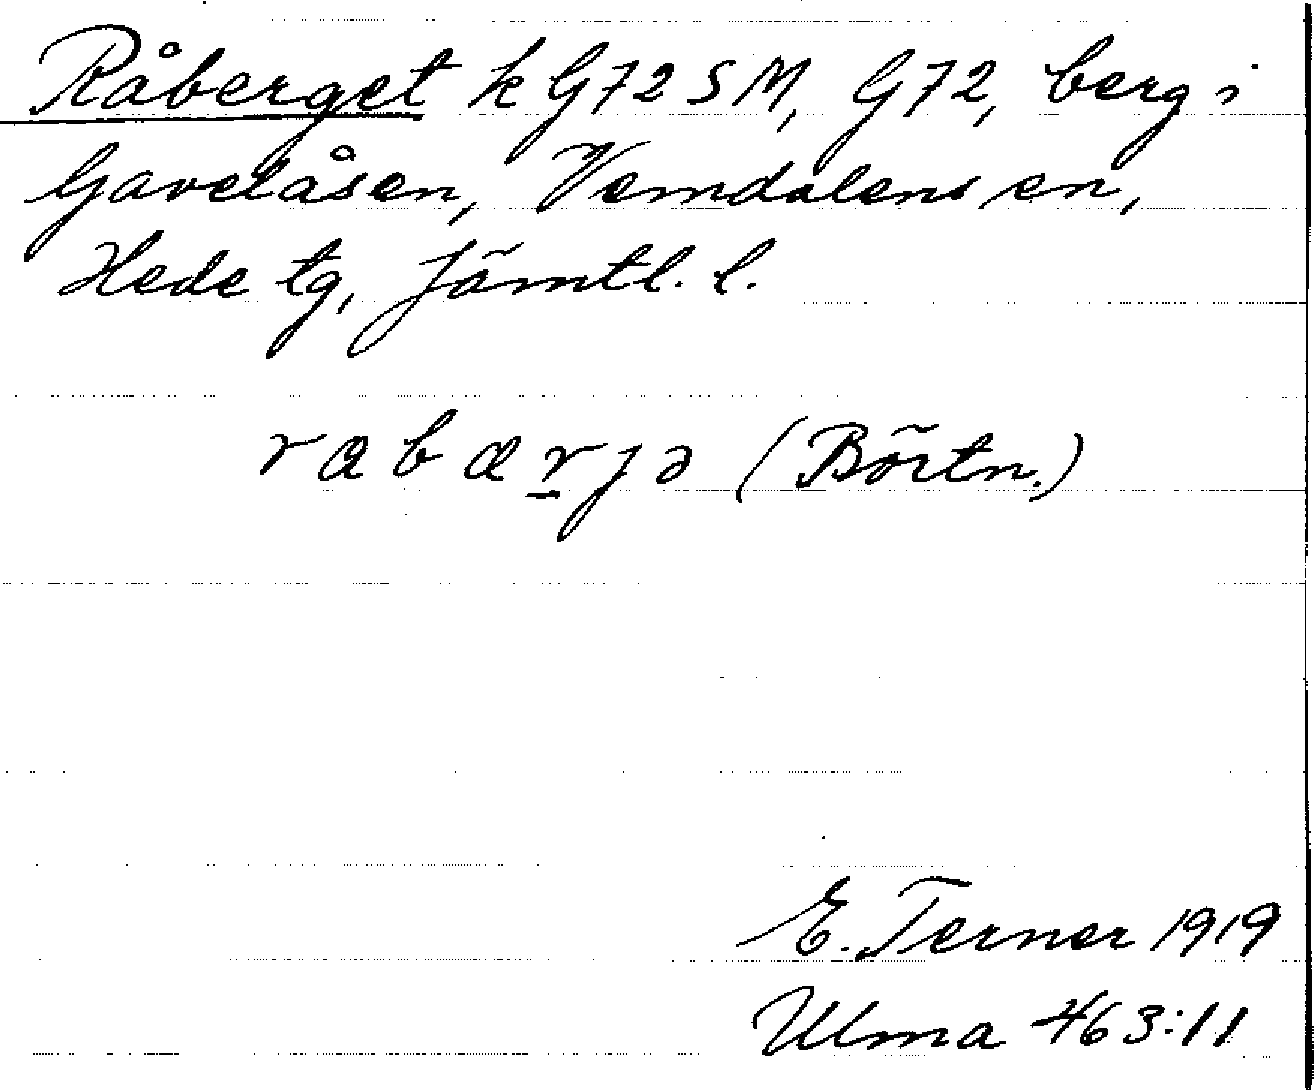 Råberget k G72 SM, G72, berg i
Gavelåsen, Vemdalens sn,
Hede tg, Jämtl. l.
rabærjə (Börtn.)
E. Terner 1919
Ulma 463:11